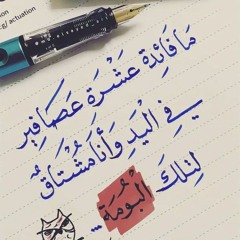 cg/ actuation
مَا فَائِدة عَشْرَة عَصَافِير
فِي الْيَدِ وَأَنَا مُشْتَاقٌ
لِتلكَ البُومَة..